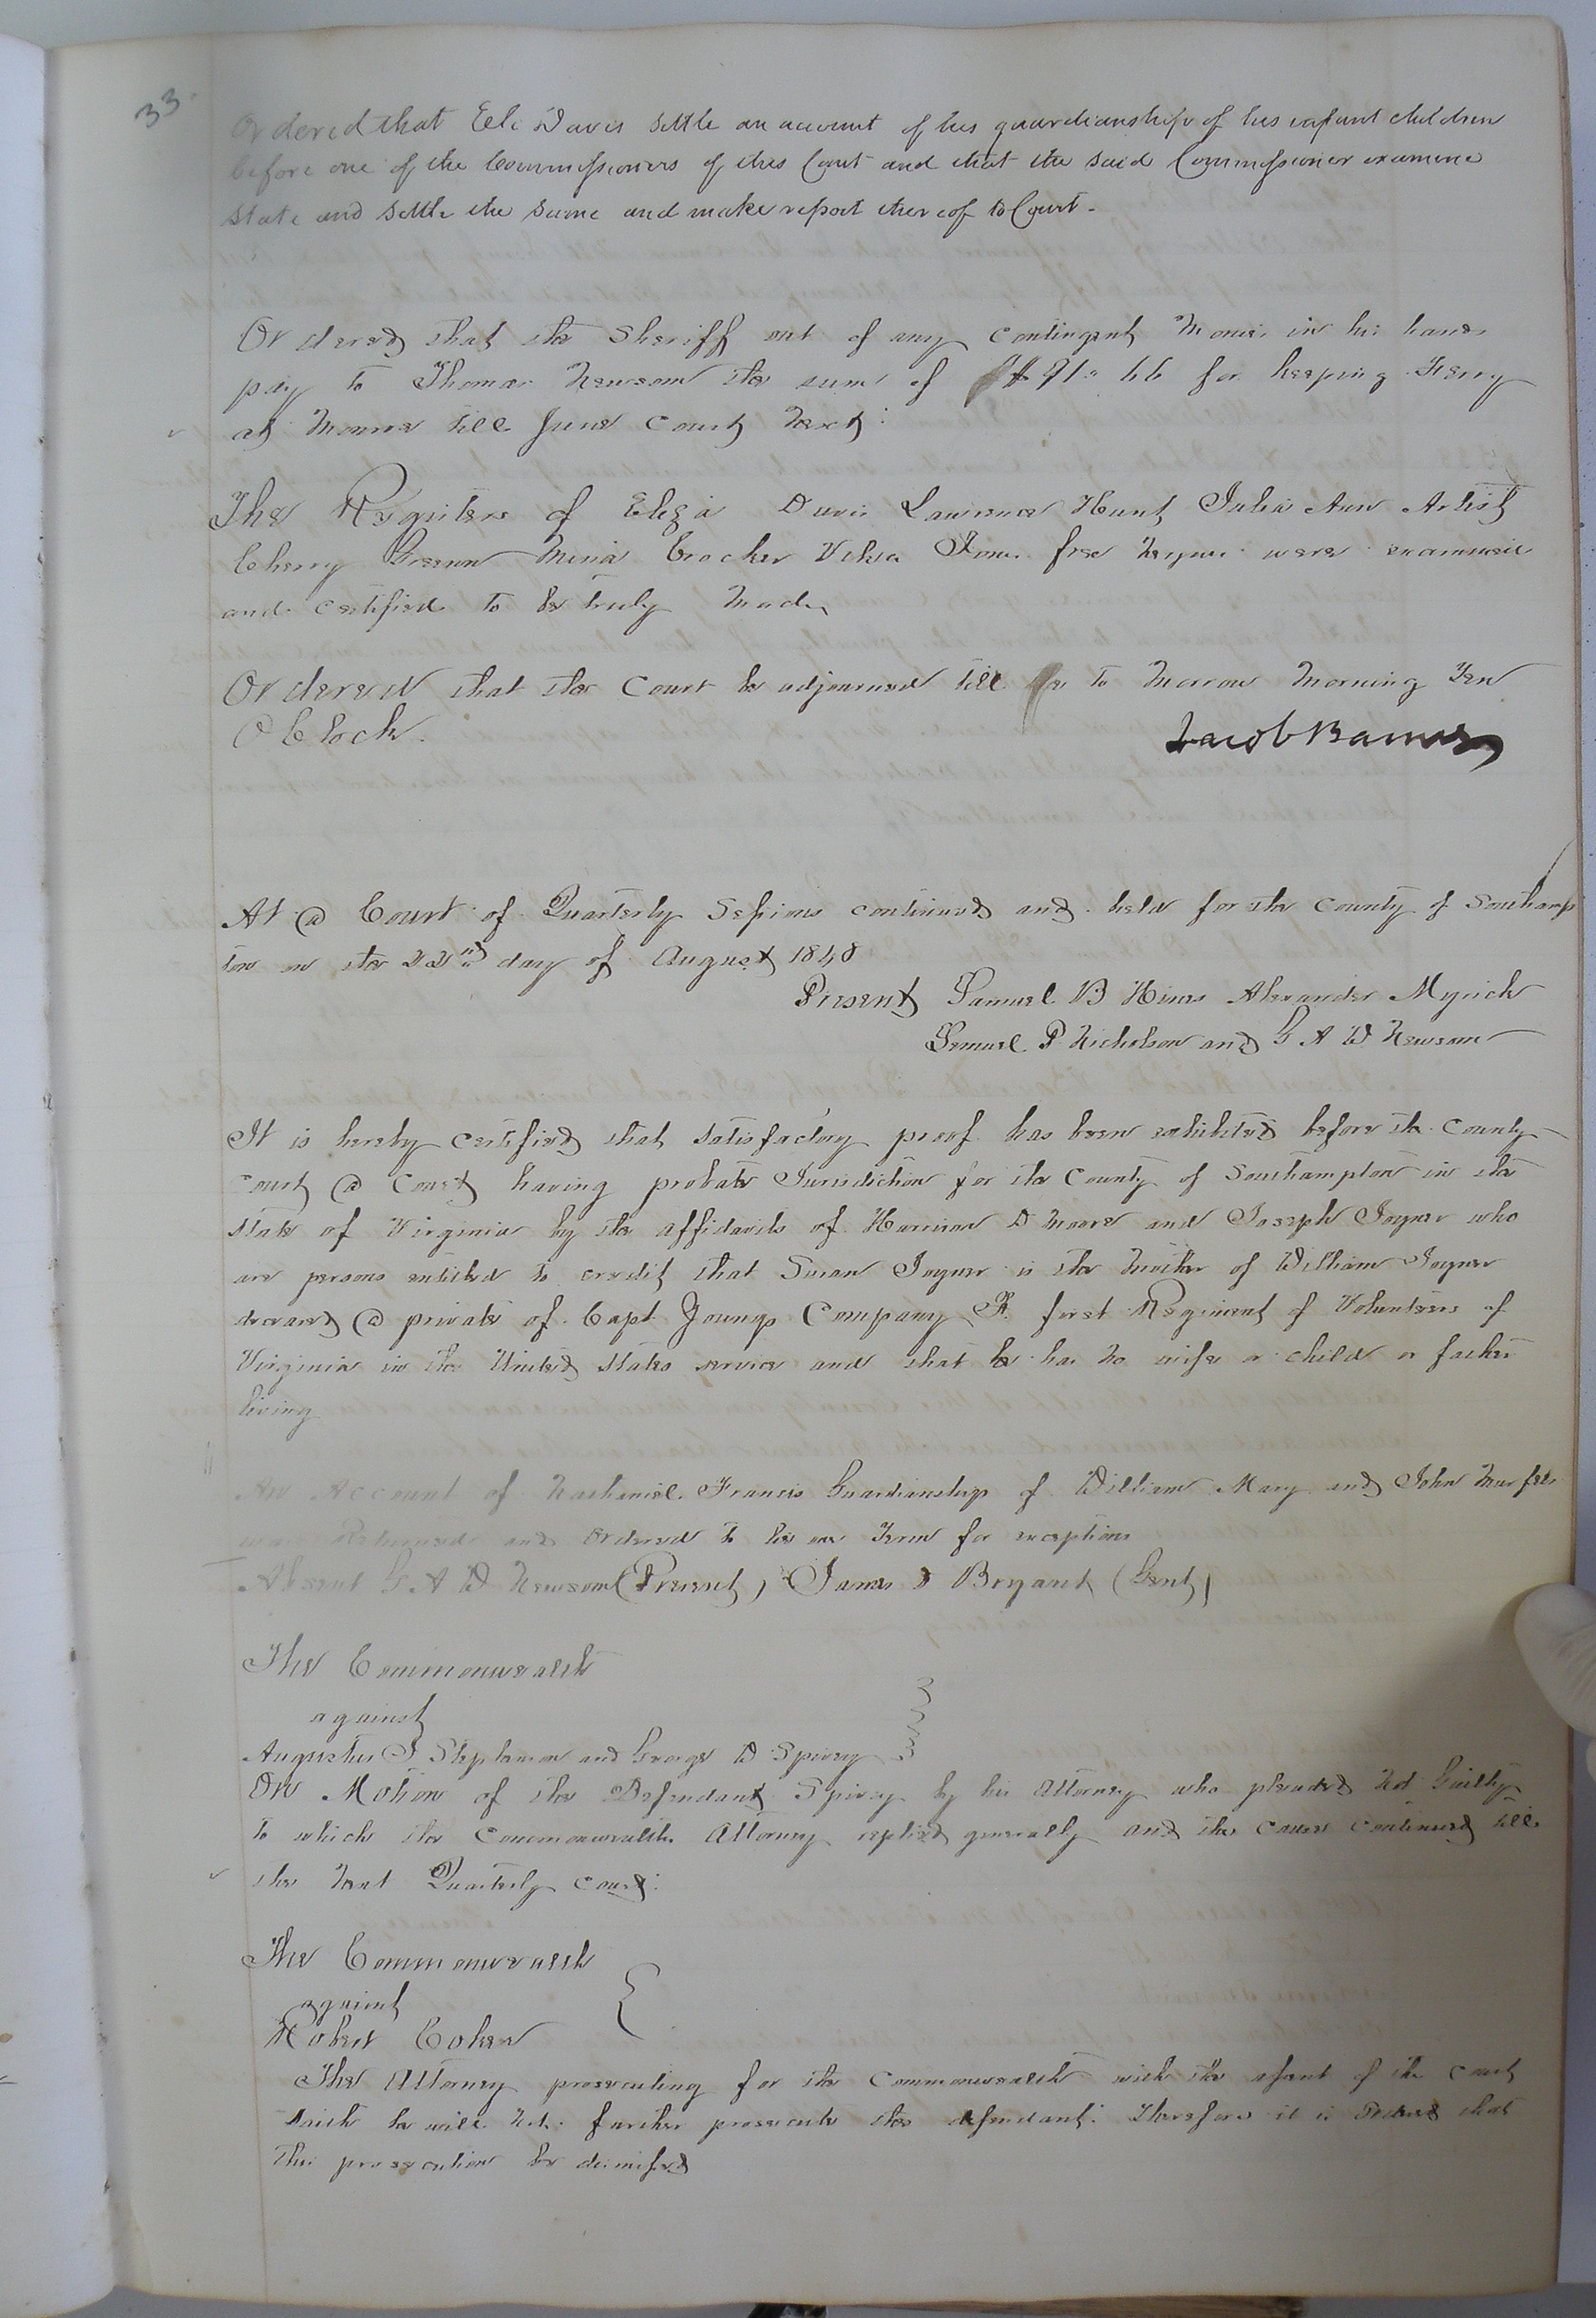 33
Ordered that Eli Davis settle an account of his guardianship of his infant children
before one of the Commissioners of this Court and that the said Commissioner examine
state and settle the same and make report thereof to Court.
Ordered that the Sheriff out of any contingent Monies in his hands
pay to Thomas Newsom the sum of $91.66 for keeping Ferry
at Monroe till June Court Next
The Registers of Eliza Davis Lawrence Hunt Julia Ann Artist
Cherry Green Crocker free Negroes were examined
and certified to be truly Made
Ordered that the Court be adjourned till to Morrow Morning Ten
O Clock.
Jacob Barnes
At a Court of Quarterly Sessions continued and held for the County of Southamp
ton on the 22nd day of August 1848
Present Samuel B Hines Alexander Myrick
Lemuel P Nicholson and G A W Newsom
It is hereby certified that satisfactory proof has been exhibited before the County
Court a Court having probate Jurisdiction for the County of Southampton in the
State of Virginia by the affidavits of Harrison D Moore and Joseph Joyner who
are persons entitled to credit that Susan Joyner is the Mother of William Joyner
deceased a private of Capt Youngs Company first Regiment of Volunteers of
Virginia in the United States service and that he has no wife or child or father
living
An Account of Nathaniel Francis Guardianship of William Mary and John
was Returned and Ordered to lie one Term for exceptions
Absent G A W Newsom (Present) James D Bryant (Gent)
The Commonwealth
against
Augustus J Stephenson and George W Spivey
On Motion of the Defendant Spivey by his Attorney who pleaded Not Guilty
to which the Commonwealths Attorney replied generally and the cause continued till
the Next Quarterly Court
The Commonwealth
against
Robert Coker
The Attorney prosecuting for the Commonwealth with the assent of the Court
saith he will Not further prosecute the defendant Therefore it is Ordered that
this prosecution be dismissed